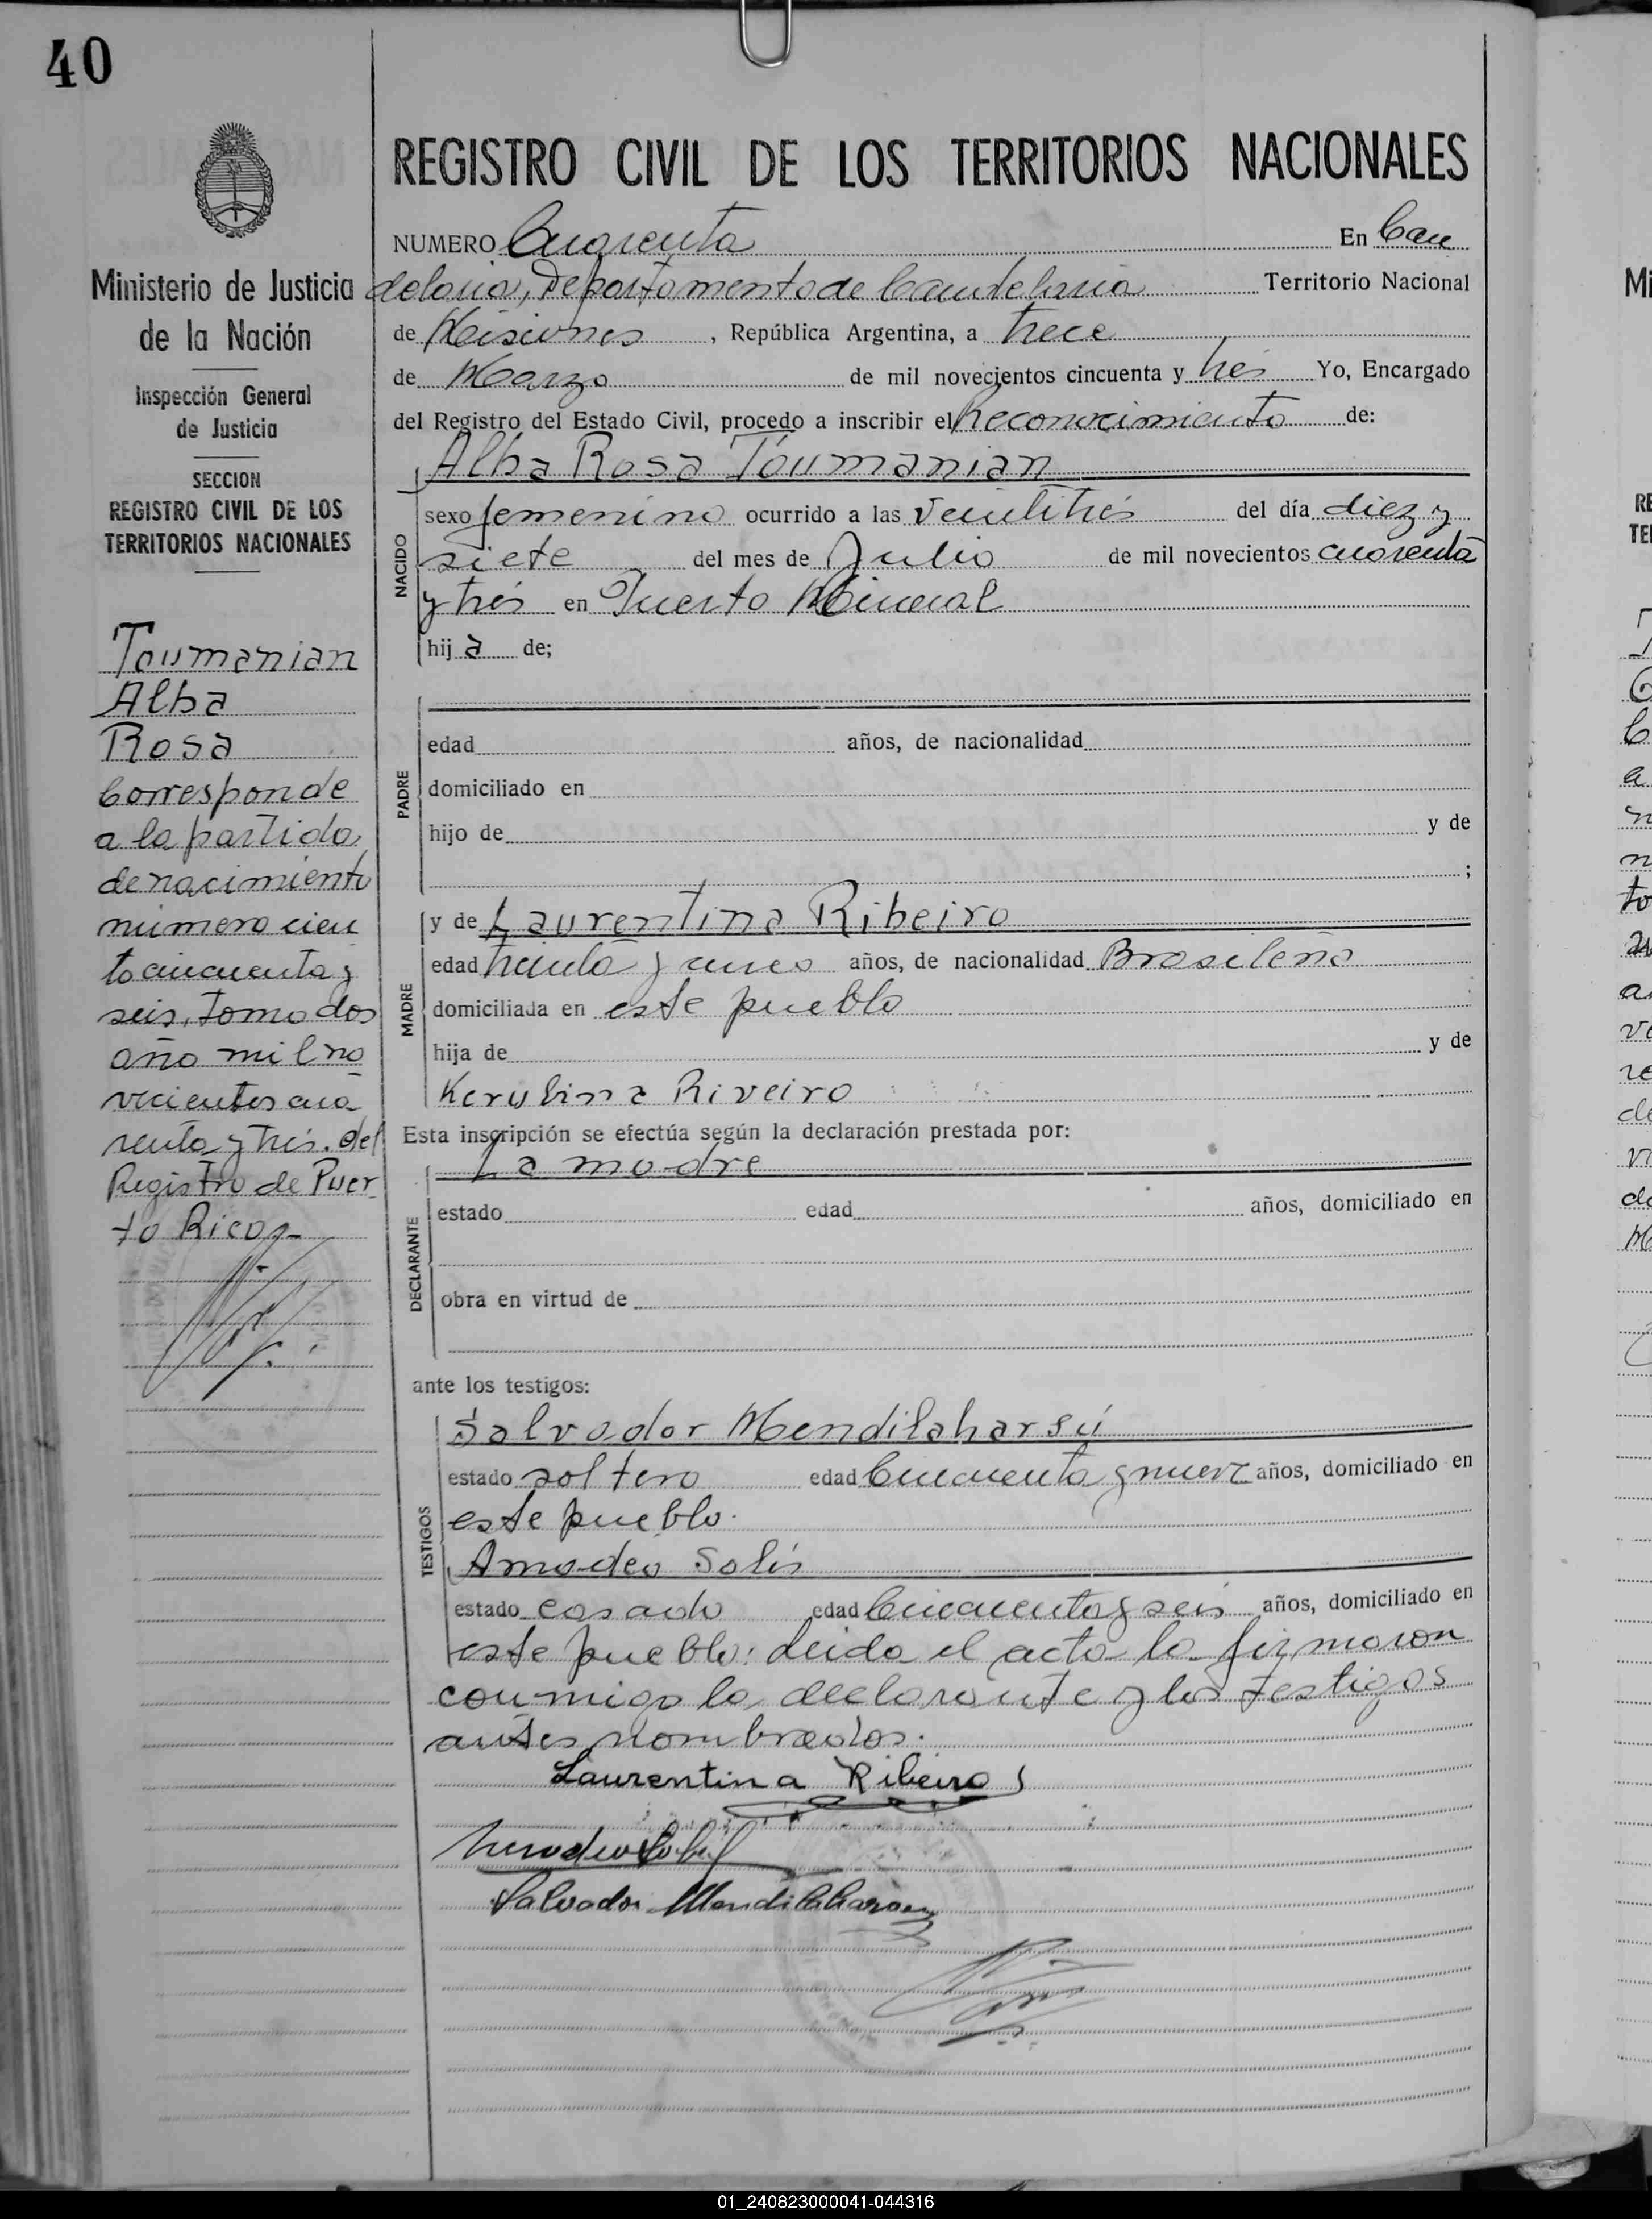 40
REGISTRO CIVIL DE LOS TERRITORIOS NACIONALES
NUMERO Cuarenta En Can
delaria, Departamento de Candelaria Territorio Nacional
de Misiones , República Argentina, a trece
de Marzo de mil novecientos cincuenta y trés Yo, Encargado
del Registro del Estado Civil, procedo a inscribir el Reconocimiento de:
Alba Rosa Toumanian
NACIDO
sexo femenino ocurrido a las veintitrés del día diez y
siete del mes de Julio de mil novecientos cuarenta
y trés en Puerto Mineral
hij a de;
PADRE
edad años, de nacionalidad
domiciliado en
hijo de y de
;
MADRE
y de Laurentina Ribeiro
edad treinta y cinco años, de nacionalidad Brasileña
domiciliada en este pueblo
hija de y de
Kerubina Riveiro
Esta inscripción se efectúa según la declaración prestada por:
La madre
DECLARANTE
estado edad años, domiciliado en
obra en virtud de
ante los testigos:
TESTIGOS
Salvador Mendilaharsú
estado soltero edad Cincuenta y nueve años, domiciliado en
este pueblo.
Amadeo Solís
estado casado edad Cincuenta y seis años, domiciliado en
este pueblo: leida el acta la firmaron
conmigo la declarante y los testigos
antes nombrados.
Laurentina Ribeiro
Amadeo Solís
Salvador Mendilaharsu
Ministerio de Justicia
de la Nación
Inspección General
de Justicia
SECCION
REGISTRO CIVIL DE LOS
TERRITORIOS NACIONALES
Toumanian
Alba
Rosa
Corresponde
a la partida
de nacimiento
número cien
to cincuenta y
seis, tomo dos
año mil no
vecientos cua
renta y trés. del
Registro de Puer
to Rico.-
01_240823000041-044316